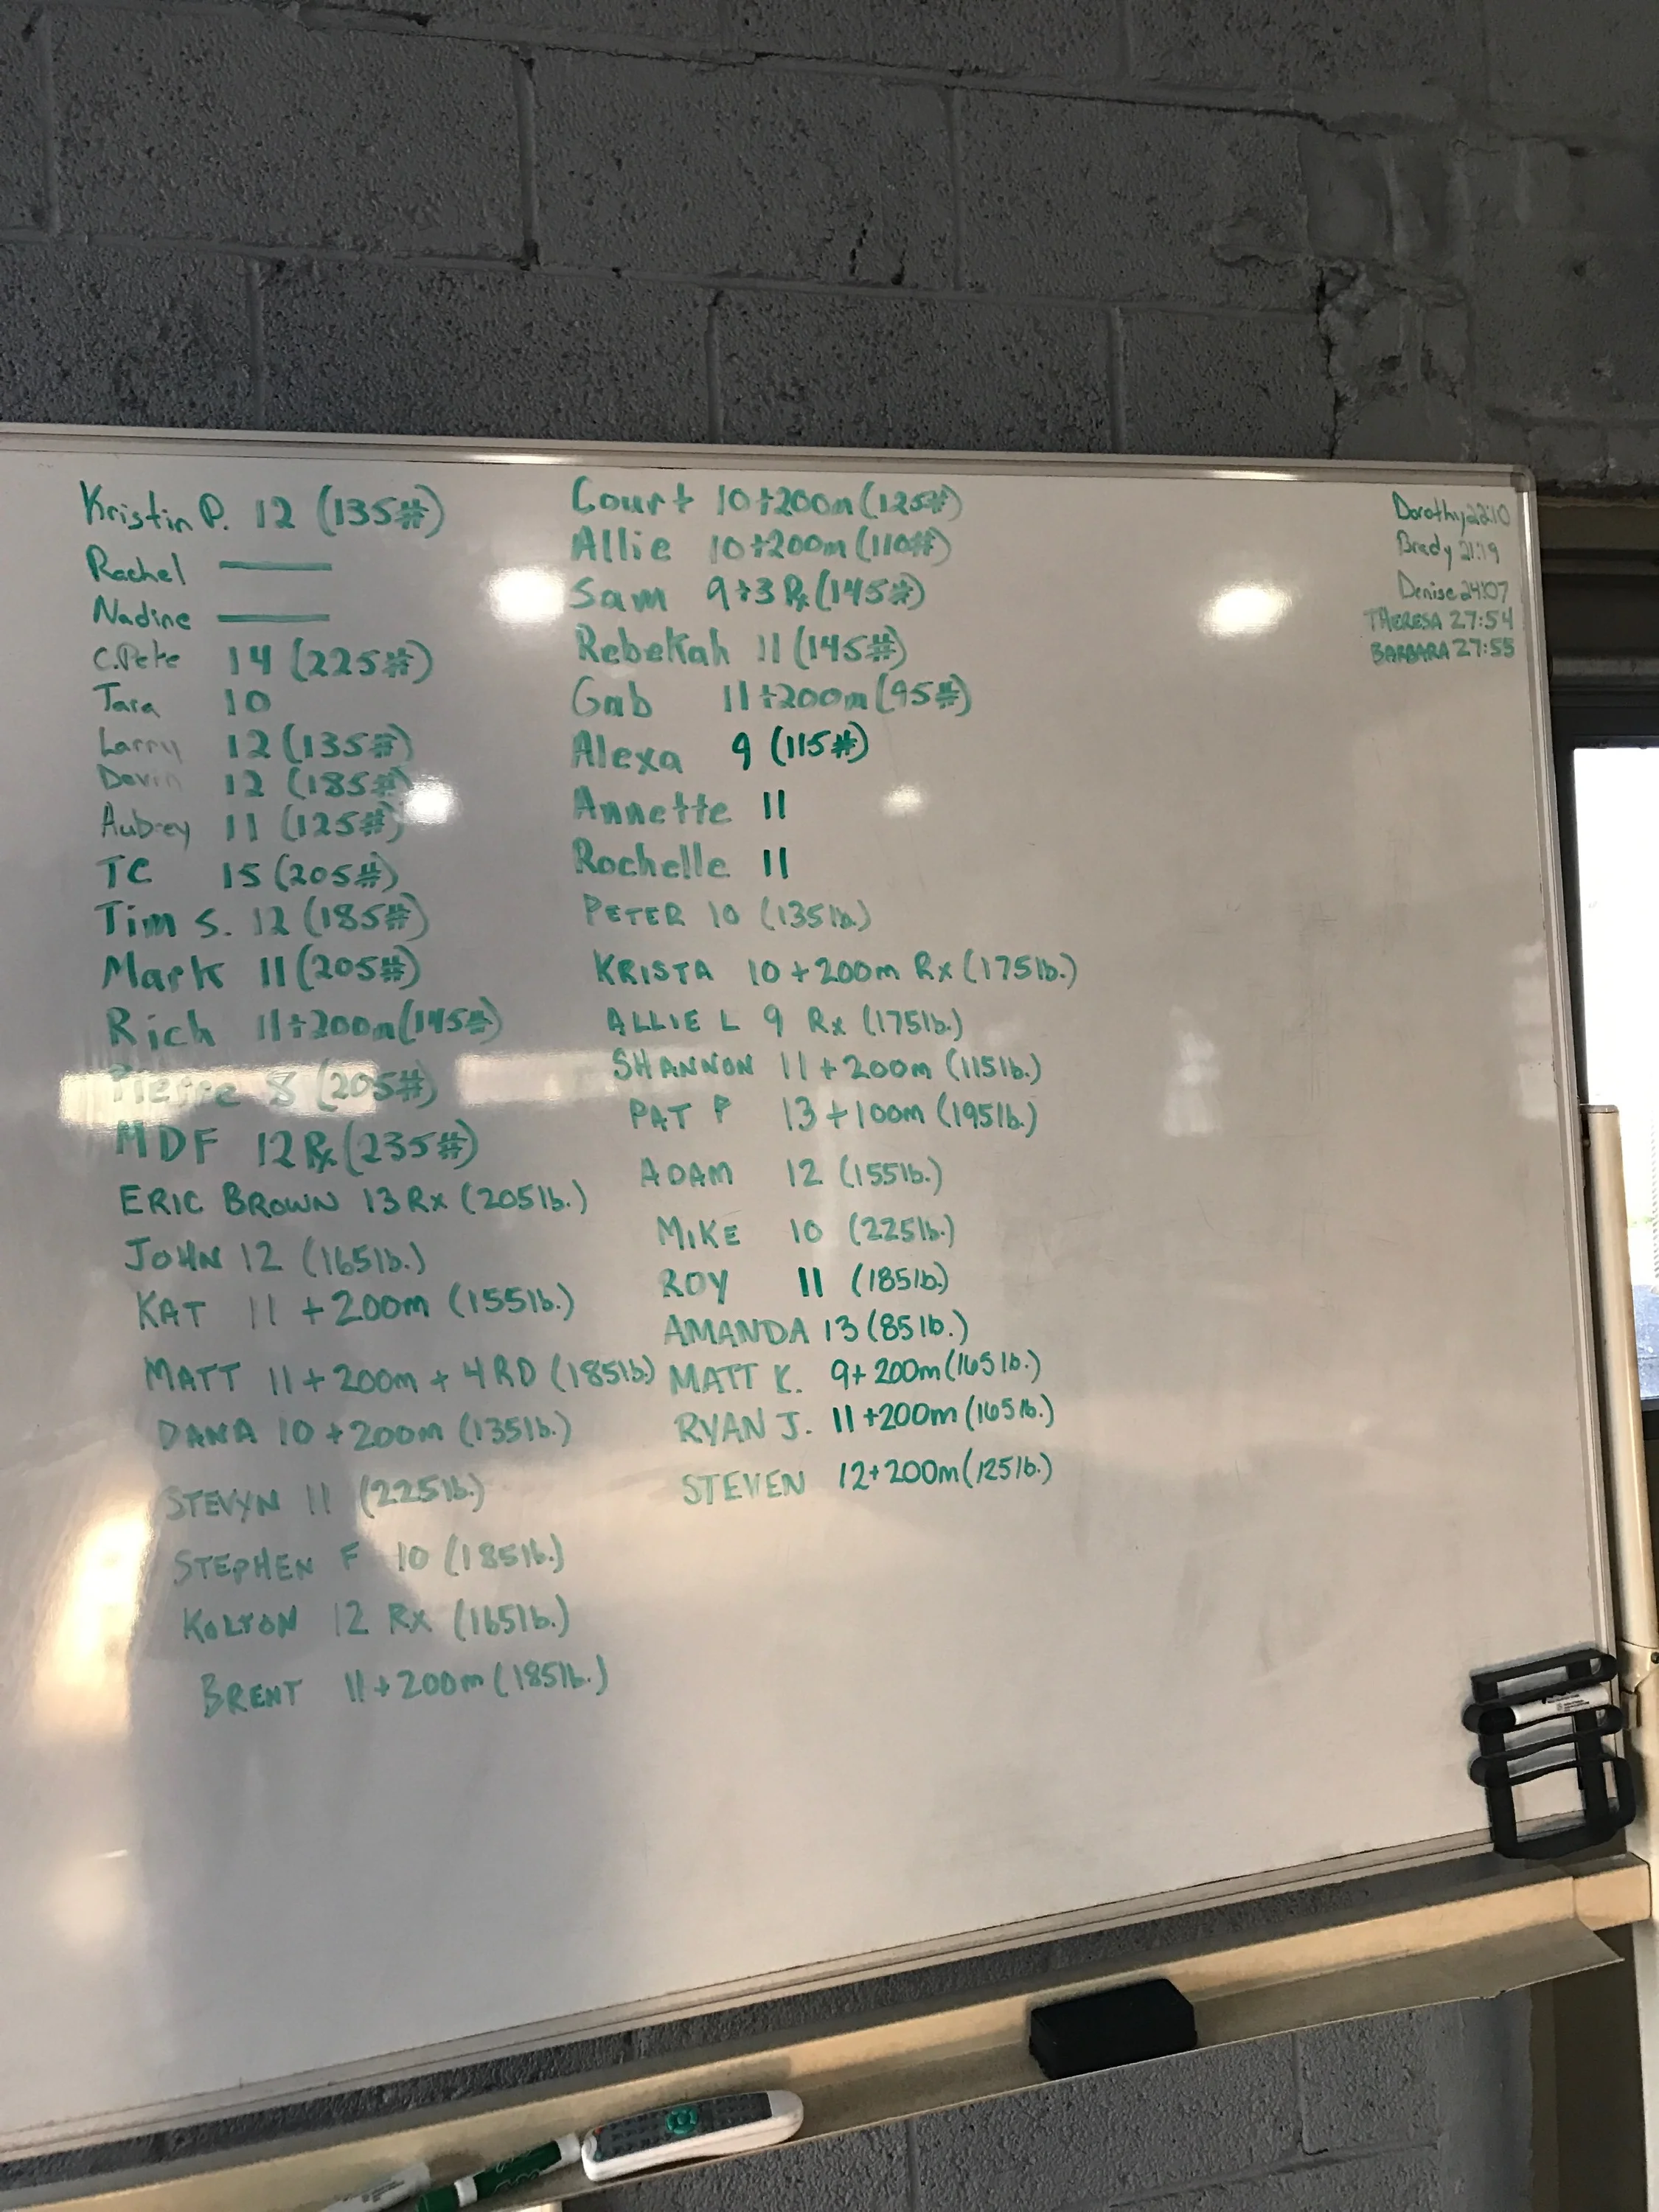 Kristin P. 12 (135#)
Rachel
Nadine
C.Pete 14 (225#)
Tara 10
Larry 12 (135#)
Devin 12 (185#)
Aubrey 11 (125#)
TC 15 (205#)
Tim S. 12 (185#)
Mark 11 (205#)
Rich 11+200m (145#)
Pierre 8 (205#)
MDF 12 Rx (235#)
ERIC BROWN 13 Rx (205lb.)
JOHN 12 (165lb.)
KAT 11 + 200m (155lb.)
MATT 11 + 200m + 4 RD (185lb)
DANA 10 + 200m (135lb.)
STEVYN 11 (225lb.)
STEPHEN F 10 (185lb.)
KOLTON 12 Rx (165lb.)
BRENT 11 + 200m (185lb.)
Court 10+200m (125#)
Allie 10+200m (110#)
Sam 9+3 Rx (145#)
Rebekah 11 (145#)
Gab 11+200m (95#)
Alexa 9 (115#)
Annette 11
Rochelle 11
PETER 10 (135lb.)
KRISTA 10 + 200m Rx (175lb.)
ALLIE L 9 Rx (175lb.)
SHANNON 11 + 200m (115lb.)
PAT P 13 + 100m (195lb.)
ADAM 12 (155lb.)
MIKE 10 (225lb.)
ROY 11 (185lb.)
AMANDA 13 (85lb.)
MATT K. 9+ 200m (165lb.)
RYAN J. 11 +200m (165lb.)
STEVEN 12+ 200m (125lb.)
Dorothy 22:10
Brady 21:19
Denise 24:07
THERESA 27:54
BARBARA 27:55